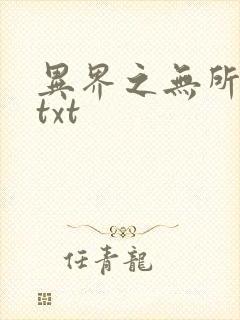 異界之無所
txt
任青龍